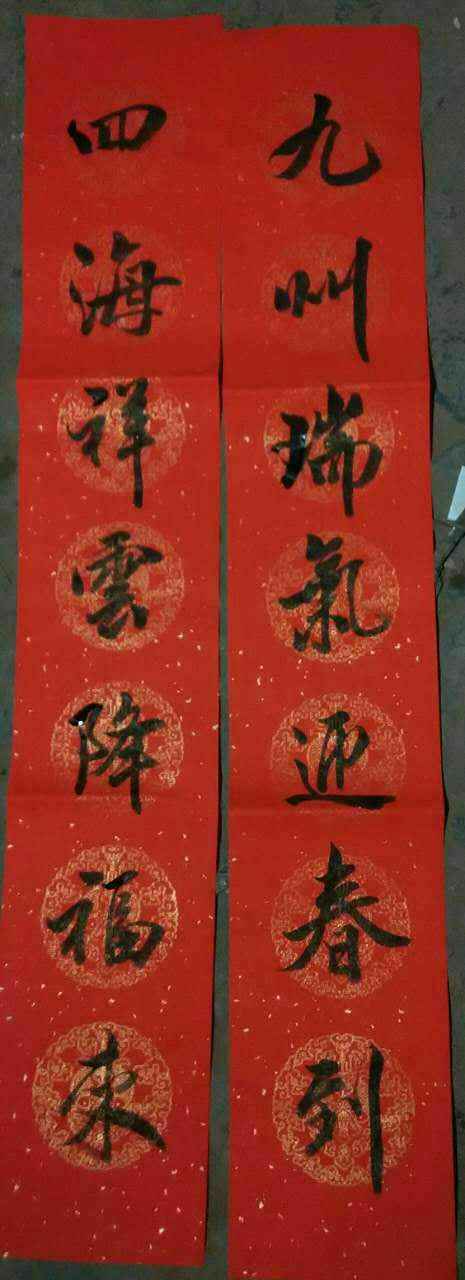 九州瑞氣迎春到
四海祥雲降福来